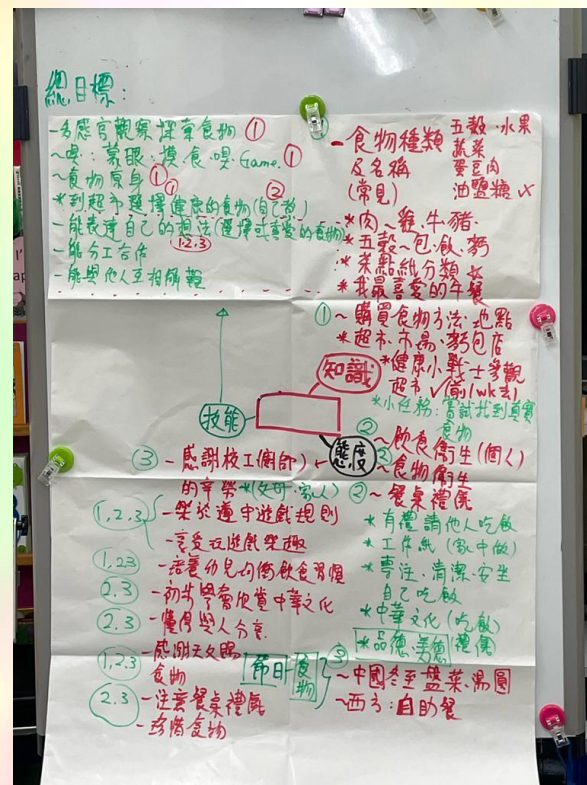 總目標:
-多感官觀察探索食物 ①
~嗅:蒙眼.摸.食.嗅.Game. ①
~食物原身 ①
*到超市選擇健康的食物(自己者) ① ②
-能表達自己的想法(選擇或喜愛的食物)
-能分工合作 1.2.3
-能與他人互相解難
① -食物種類 五穀.水果
及名稱 蔬菜
(常見) 蛋豆肉
油鹽糖
*肉~雞.牛豬.
*五穀~包.飯.麪
*菜點紙分類
*我最喜愛的午餐
① ~購買食物方法.地點
*超市.市場.麪包店
*健康小戰士參觀
超市√(前1wk去)
*小任務:嘗試找到真實
食物
知識
技能
態度
② ~飲食衞生(個人)
② ~食物衞生
② ~餐桌禮儀
*有禮請他人吃飯
*工作紙(家中做)
*專注.清潔.安坐
自己吃飯
*中華文化(吃飯)
*品德.美德(禮儀)
③ -感謝校工(廚師)
的辛勞*(父母.家人)
1,2,3 -樂於遵守遊戲規則
-享受玩遊戲樂趣
1,2,3 -培養幼兒均衡飲食習慣
2.3 -初步學會欣賞中華文化
2.3 -懂得與人分享
1,2,3 -感謝天父賜
食物
2.3 -注意餐桌禮儀
-珍惜食物
節日食物
③ ~中國冬至盤菜.湯圓
~西方:自助餐